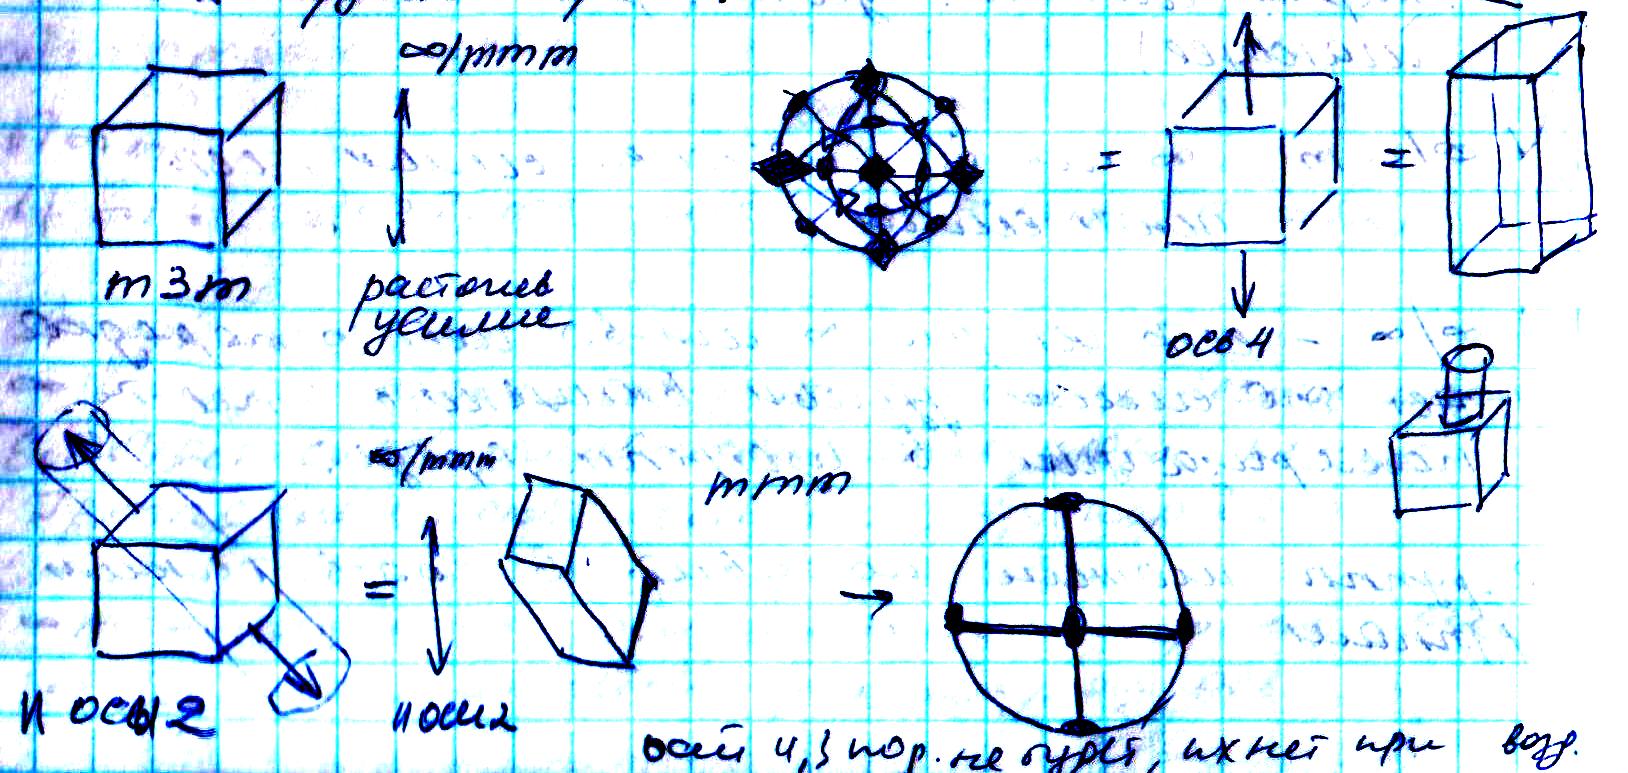 ∞/mmm
m3m
растягив
усилие
=
=
ось 4
∞/mmm
mmm
=
→
II оси 2
II оси 2
осей 4,3 пор. не будет, их нет при возд.